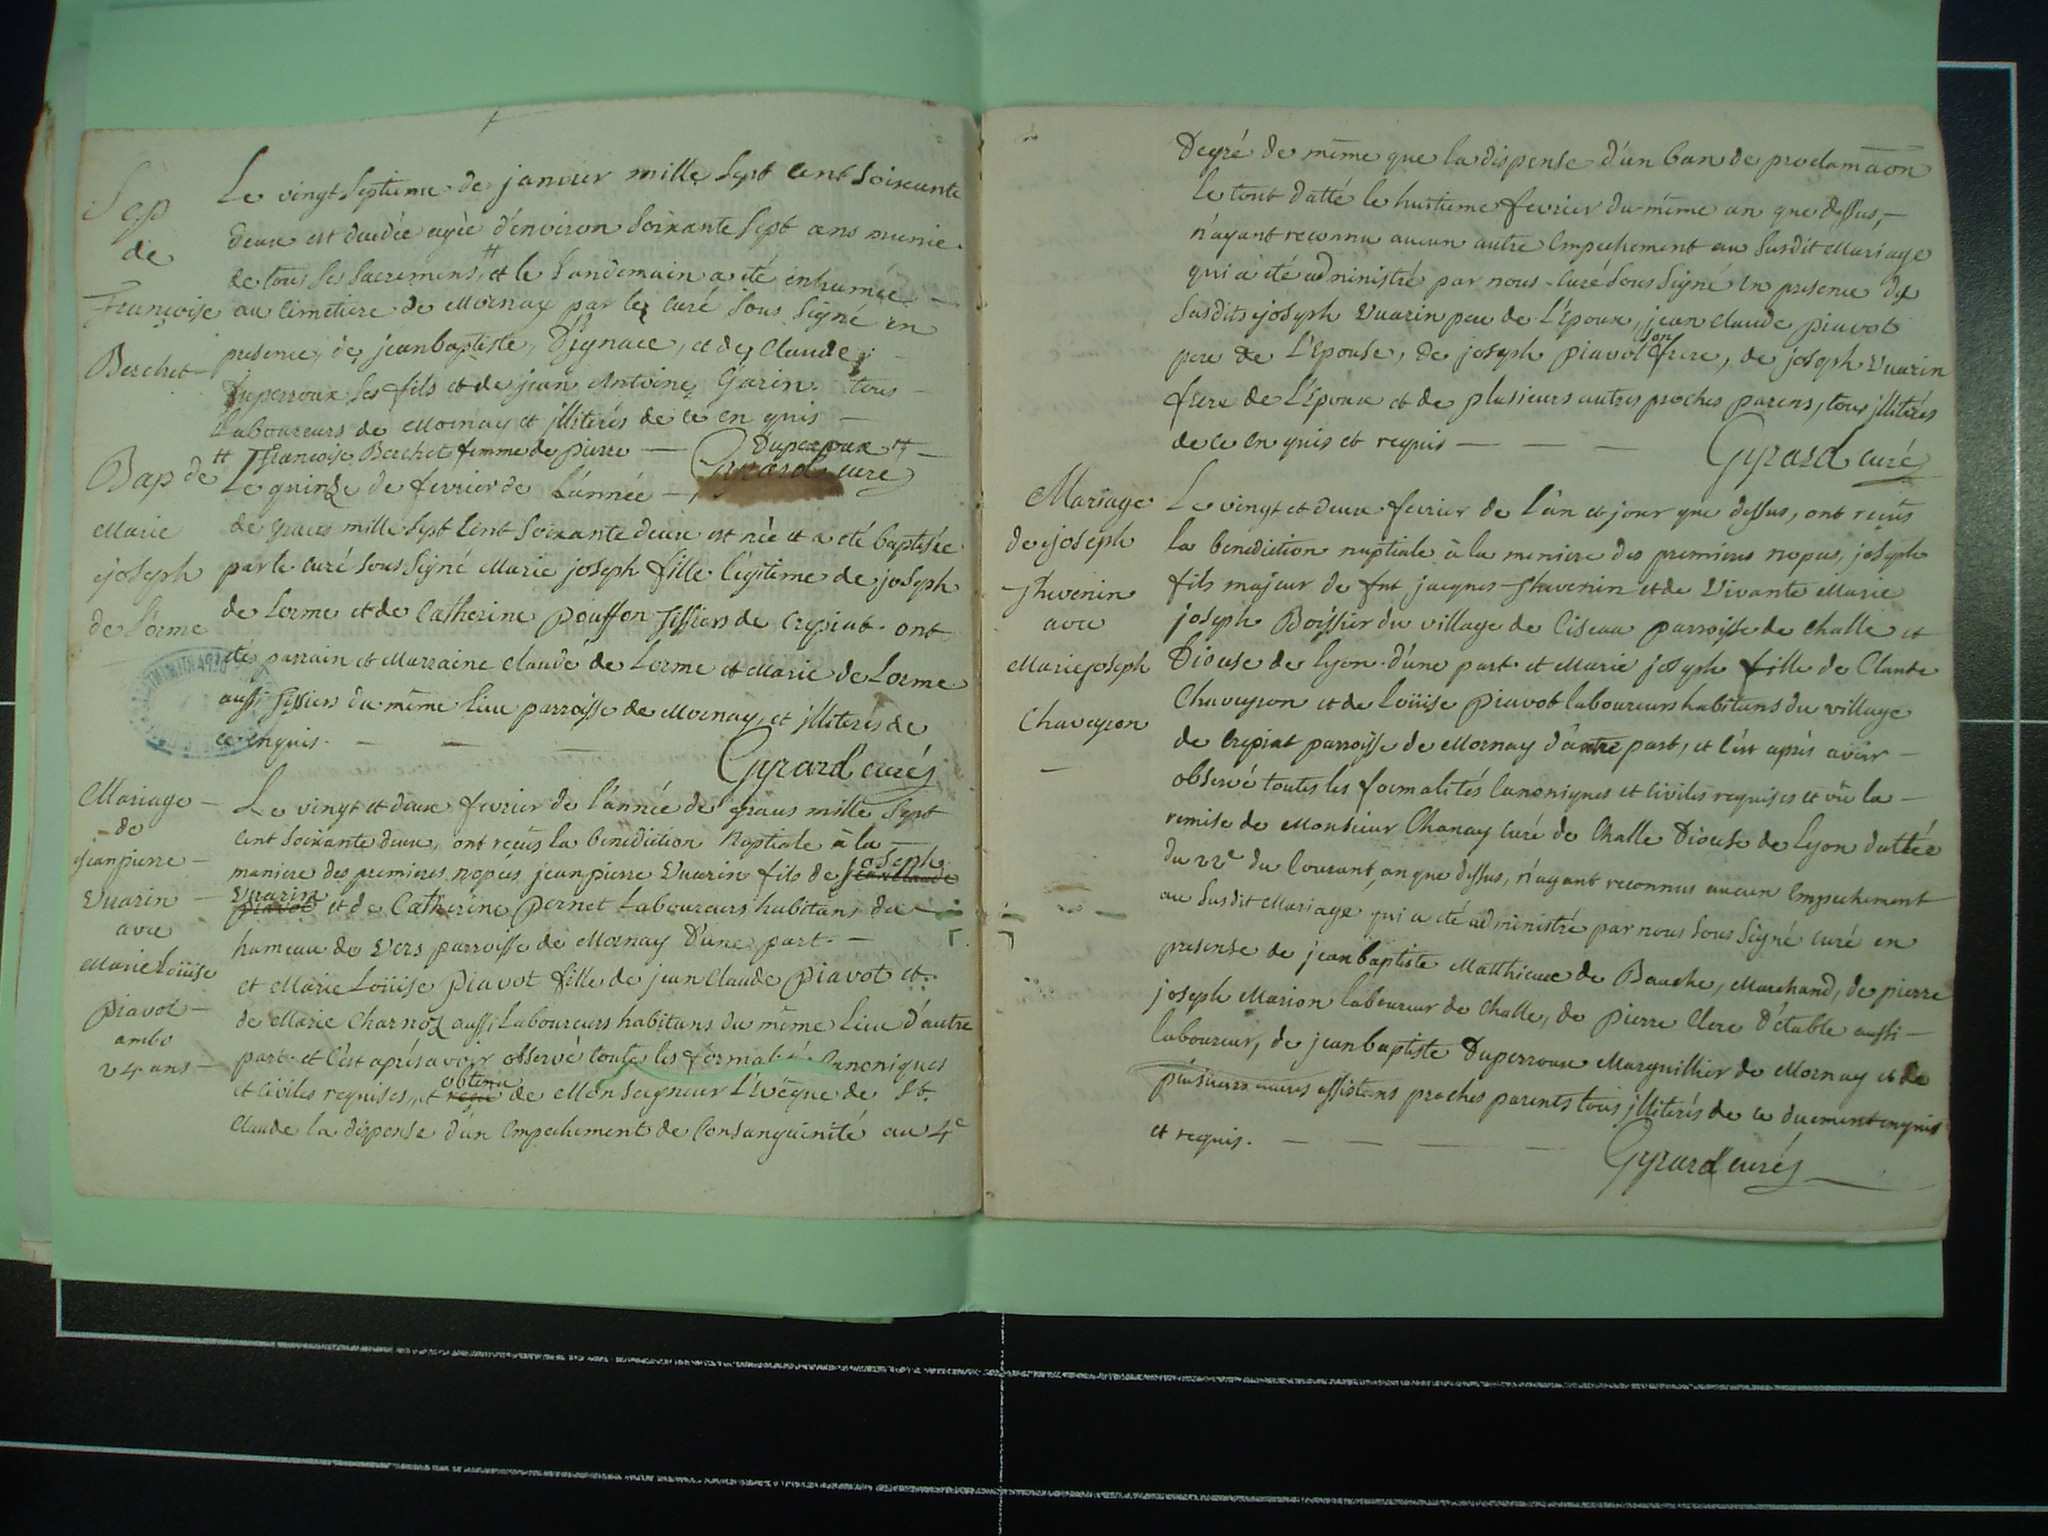 Sep
de
Françoise
Berchet
Le vingt septieme de janvier mille sept cent soixante
deux est decedée agée d'environ soixante sept ans munie
de tous ses sacremens, # et le landemain a été enhumée
au cimetiere de Mornay par le curé sous signé en
presence de jean baptiste, d'jgnace, et de Claude
Duperroux ses fils et de jean Antoine Garin tous
laboureurs de Mornay et jlliterés de ce en quis
# françoise Berchet femme de pierre Duperroux #
Gyrard curé
Bap de
Marie
joseph
de Lorme
Le quinze de fevrier de L'année
de graces mille sept cent soixante deux est née et a été baptisée
par le curé sous signé Marie joseph fille légitime de joseph
de Lorme et de Catherine pouffon tissiers de Crepiat ont
été parrain et Marraine Claude de Lorme et Marie de Lorme
aussi tissiers du même lieu parroisse de Mornay, et jlliterés de
ce enquis.
Gyrard curé
Mariage
de
jean pierre
Vuarin
avec
Marie Loüise
piavot
ambo
24 ans
Le vingt et deux fevrier de l'année de graces mille sept
cent soixante deux, ont reçus la benediction Nuptiale à la
maniere des premieres nopces jean pierre Vuarin fils de jean Claude joseph
piavot Vuarin et de Catherine pernet Laboureurs habitans du
hameau de Vers parroisse de Mornay D'une part.
et Marie Loüise piavot fille de jean Claude piavot et
de Marie Charnoz aussi Laboureurs habitans du même Lieu d'autre
part. et c'est aprés avoir observé toute les formalité Canoniques
et civiles requises, et reçu obtenu de Monseigneur L'evêque de St.
Claude la dispense d'un Empechement de Consanguinité au 4e
Degré de même que la dispense d'un ban de proclamaon
le tout datté le huitieme fevrier du même an que dessus,
n'ayant reconnu aucun autre Empechement au susdit Mariage
qui a été administré par nous curé sous signé en presence des
susdits joseph Vuarin pere de L'époux, jean Claude piavot
pere de L'Epouse, de joseph piavot son frere, de joseph Vuarin
frere de L'époux et de plusieurs autres proches parens, tous jlliterés
de ce en quis et requis
Gyrard curé
Mariage
de joseph
Thevenin
avec
Marie joseph
Chaveyron
Le vingt et deux fevrier de l'an et jour que dessus, ont reçus
la benediction nuptiale à la meniere des premieres nopces, joseph
fils majeur de fut jacques Thevenin et de Vivante Marie
joseph Boissier du village de Ciseau parroisse de Challe et
Diocese de Lyon d'une part et Marie joseph fille de Claude
Chaveyron et de Loüise piavot laboureurs habitans du village
de Crepiat parroisse de Mornay d'autre part, et c'est aprés avoir
observé toutes les formalités Canoniques et Civiles requises et vû la
remise de Monsieur Chanay curé de Challe Diocese de Lyon dattée
du 22e du Courant, an que dessus, n'ayant reconnus aucun Empechement
au susdit Mariage qui a été administré par nous sous signé curé en
presense de jean baptiste Matthieux de Bauche, Marchand, de pierre
joseph Marion laboureur de Challe, de pierre Clere D'étable aussi
laboureur, de jean baptiste Duperroux Marguillier de Mornay et de
plusieurs autres assistans proches parents tous jlliterés de ce duement enquis
et requis.
Gyrard curé